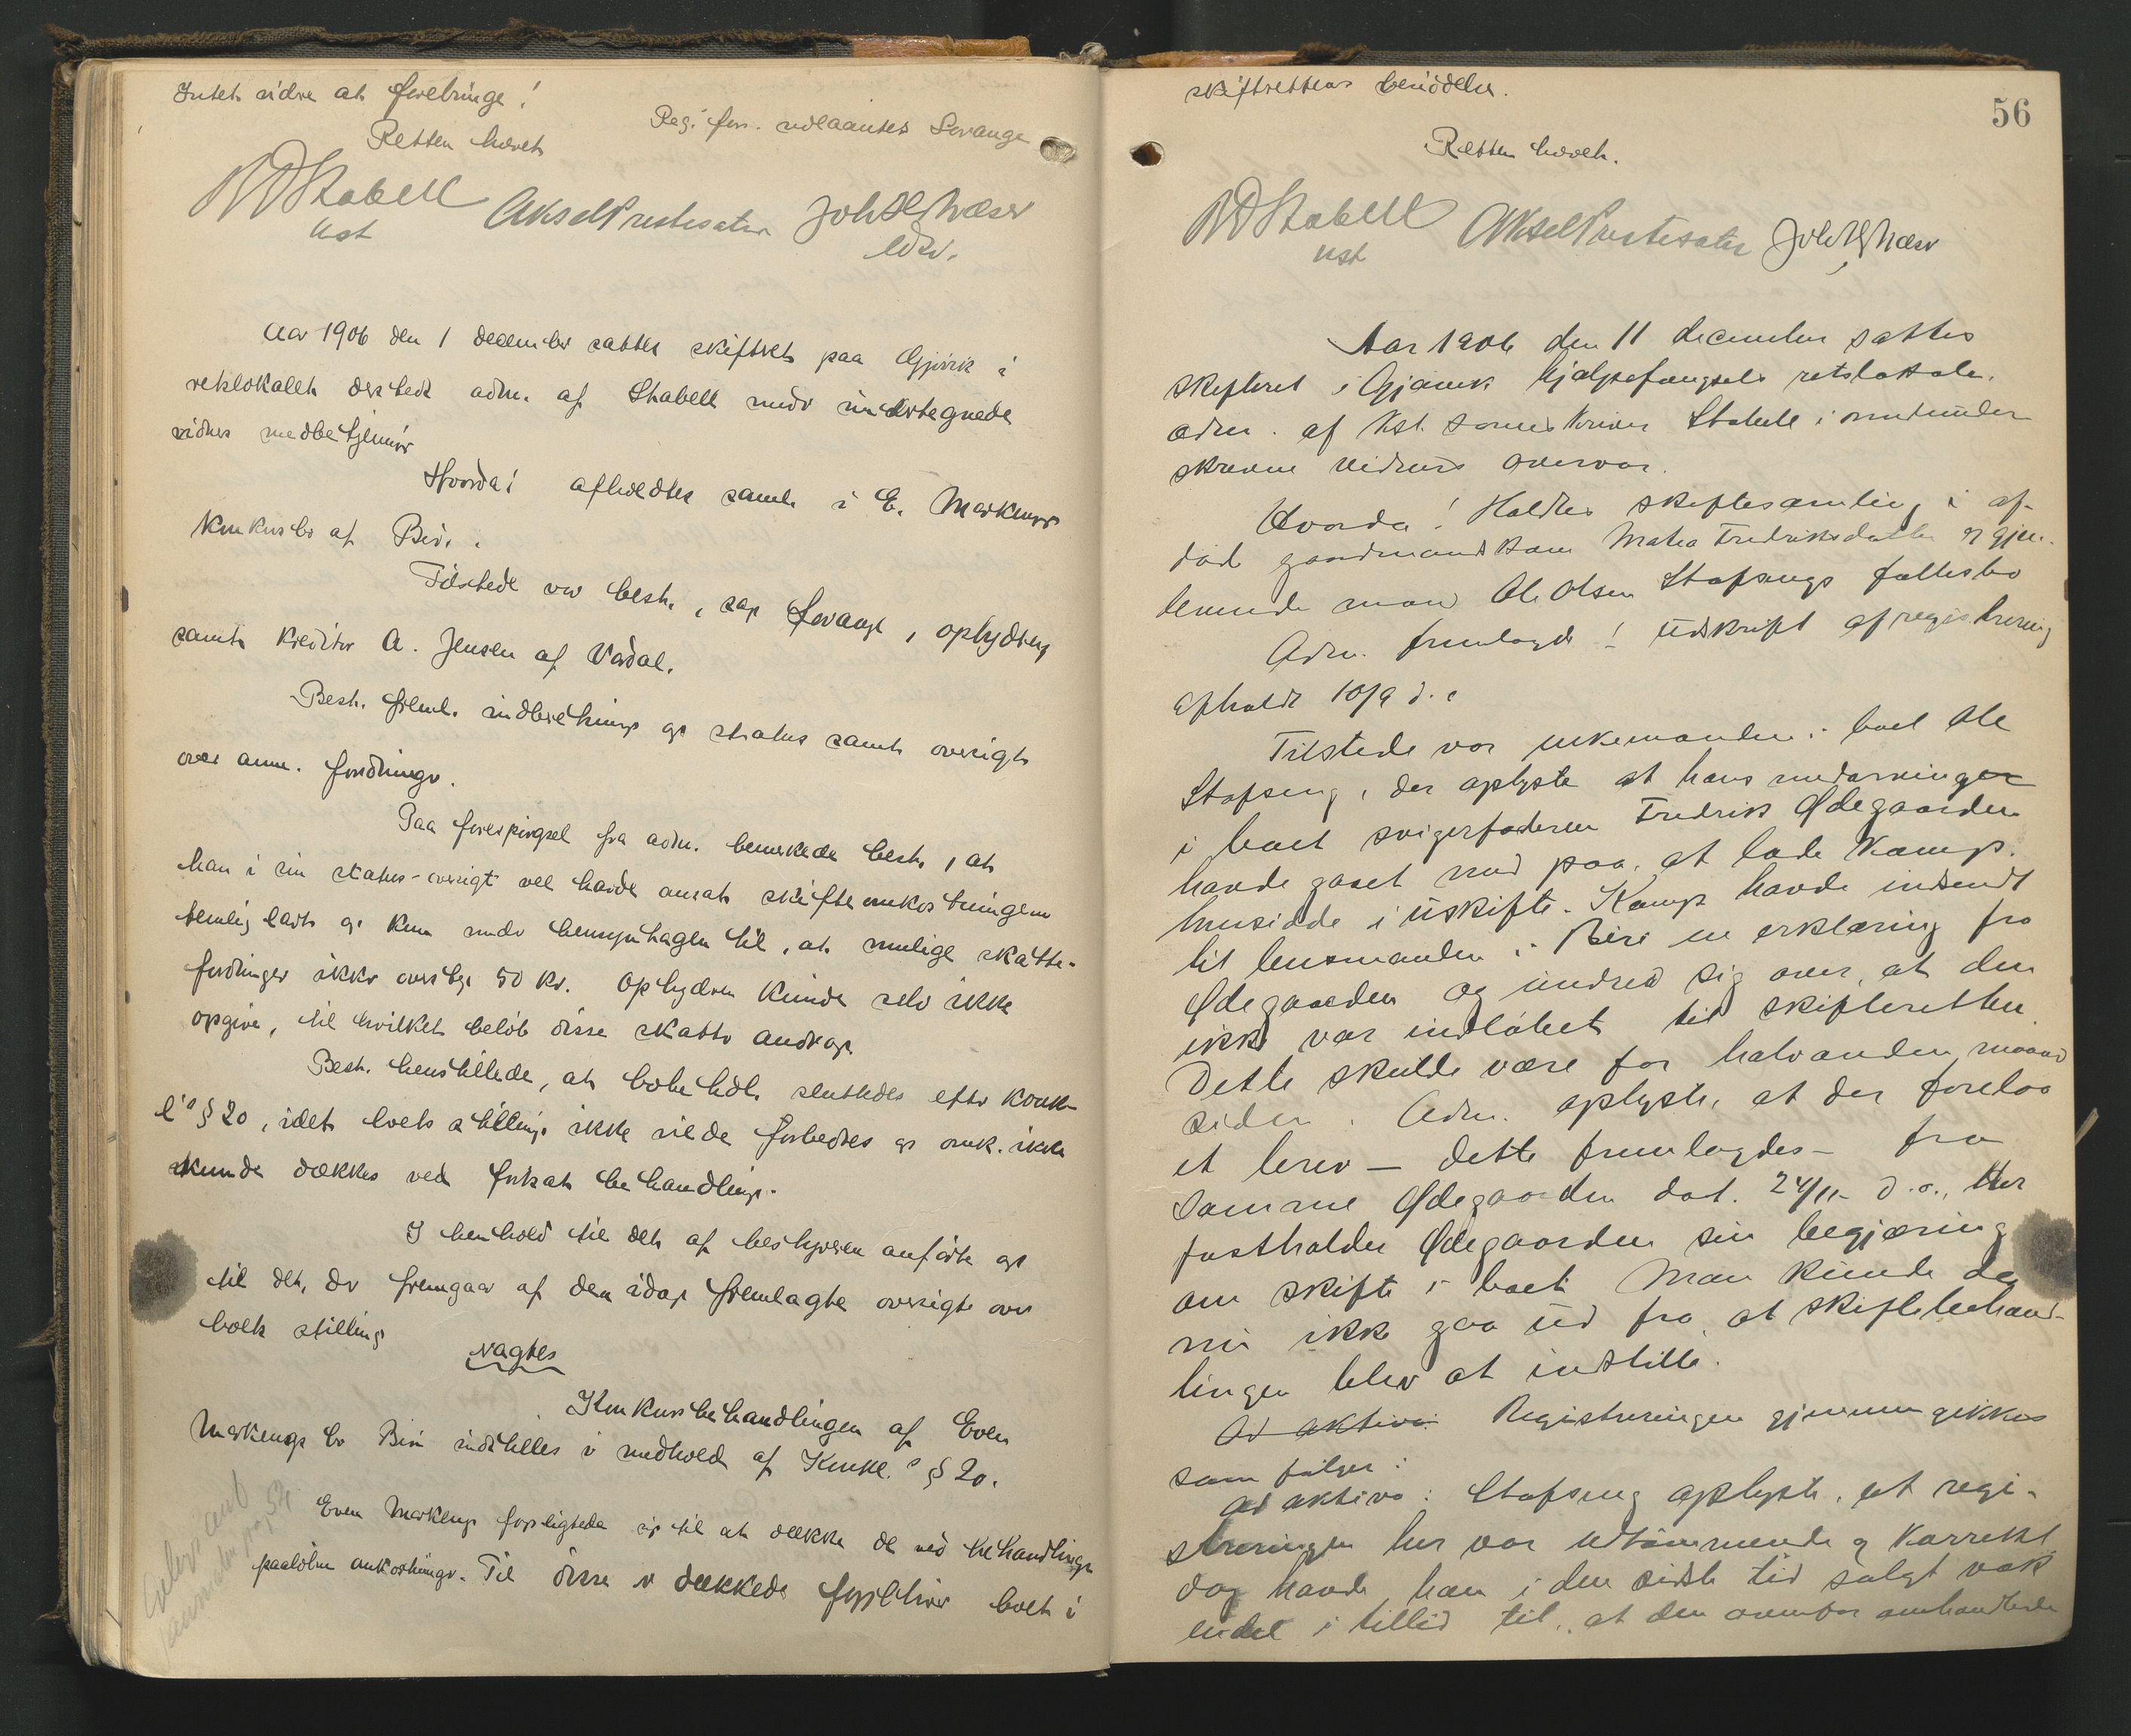 Intet videre at frebringe!
Reg. for. udlaantes Sovange
Retten hævet
N D Stabell Aksel Prestesæter Joh. H. Næser
kst edsv.
Aar 1906 den 1 december sattes skifteret paa Gjøvik i
retslokalet dersteds adm. af Stabell med undertegnede
vidner medbetjener
Hvorda! afholdtes saml. i E. Markengs
konkursbo af Biri.
Tilstede var best., sag Sovange, opbydren
samt kreditor A. Jensen af Vardal.
Best. freml. indberetning og status samt oversigt
over anm. fordringer.
Paa forespørgsel fra adm. bemerkede best., at
han i sin status-oversigt vel havde ansat skifteomkostningerne
temlig lavt og kun under hensyntagen til, at mulige skatte-
fordringer ikke oversteg 50 kr. Opbydren kunde selv ikke
opgive, til hvilket beløb disse skatter androg.
Best. henstillede, at bobehdl. sluttedes efter konk-
l's § 20, idet boets stilling ikke vilde forbedres og omk. ikke
kunde dækkes ved fortsat behandling.
I henhold til det af bestyreren anførte og
til det, der fremgaar af den idag fremlagte oversigt over
boets stilling
vagtes
Konkursbehandlingen af Even
Markengs bo Biri indstilles i medhold af Konkl.s § 20.
Even Markeng forpligtede sig til at dække de ved behandlingen
paaløbne omkostninger. Til disse er dækkede forblir boet i
56
skifterettens besiddelse.
Retten hævet.
N D Stabell Aksel Prestesæter Joh. H. Næser
kst
Aar 1906 den 11 december sattes
skifteret i Gjøviks hjælpefængsels retslokale.
adm. af kst. sorenskriver Stabell i medunder
skrevne vidners overvær.
Hvorda! Holdtes skiftesamling i af-
død gaardmandskone Mathea Fredriksdatter og gjen-
levende mand Ole Olsen Stafsengs fællesbo
Adm. fremlagde! Udskrift af registrering
afholdt 10/9 d. a
Tilstede var enkemanden i boet Ole
Stafseng, der oplyste at hans medarvinger
i boet svigerfaderen Fredrik Ødegaarden
havde gaaet med paa, at lade komp.
hensidde i uskifte. Komp. havde indsendt
til lensmanden i Biri en erklæring fra
Ødegaarden og undred sig over, at den
ikke var indløbet til skifteretten.
Dette skulde være for halvanden maaned
siden. Adm. oplyste, at der forelaa
et brev — dette fremlagdes — fra
samme Ødegaarden dat. 24/11 d. a., Her
fastholder Ødegaarden sin begjæring
om skifte i boet. Man kunde da
nu ikke gaa ud fra, at skiftebehand-
lingen blev at indstille.
Ad aktiva: Registreringen gjennemgikkes
som følger:
ad aktiva: Stafseng oplyste, at regi-
streringen her var udtømmende og korrekt
dog havde han i den sidste tid solgt
endel i tillid til, at den ovenfor omhandlede